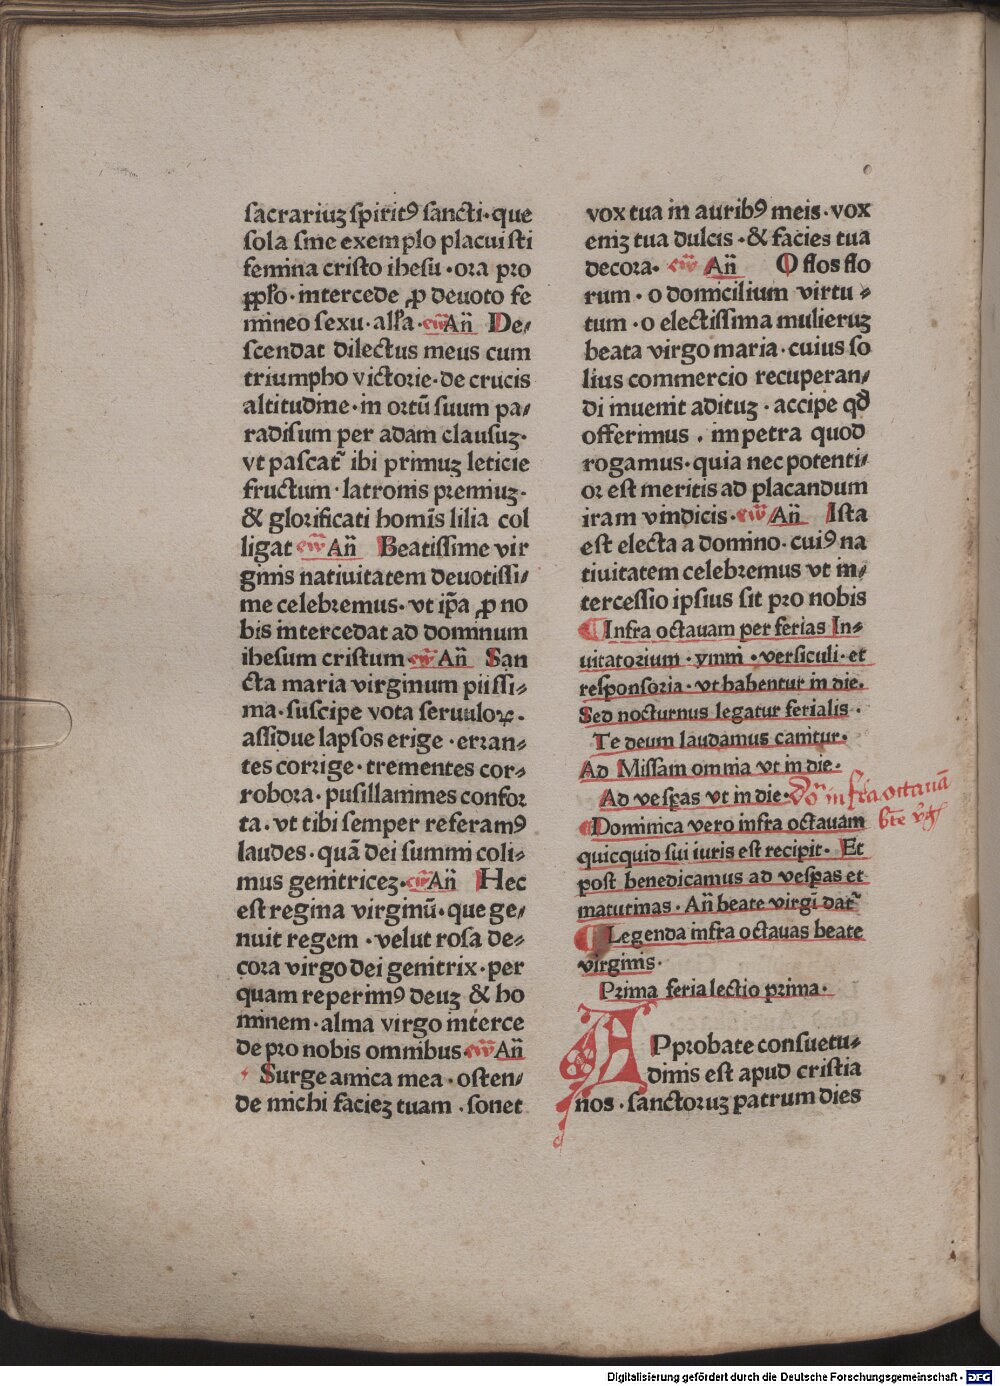 sacrariuʒ spiritꝰ sancti · que
sola sine exemplo placuisti
femina cristo ihesu · ora pro
pplo · intercede ꝓ deuoto fe
mineo sexu · allʼa · Añ De⸗
scendat dilectus meus cum
triumpho victorie · de crucis
altitudine · in ortū suum pa⸗
radisum per adam clausuʒ ·
vt pascat᷑ ibi primuʒ leticie
fructum · latronis premiuʒ ·
& glorificati homīs lilia col
ligat Añ Beatissime vir
ginis natiuitatem deuotissi⸗
me celebremus · vt ip̄a ꝓ no
bis intercedat ad dominum
ihesum cristum Añ San
cta maria virginum piissi⸗
ma · suscipe vota seruuloꝝ ·
assidue lapsos erige · erran⸗
tes corrige · trementes cor⸗
robora · pusillanimes confor
ta · vt tibi semper referamꝰ
laudes · quā dei summi coli⸗
mus genitriceʒ · Añ Hec
est regina virginū · que ge⸗
nuit regem · velut rosa de⸗
cora virgo dei genitrix · per
quam reperimꝰ deuʒ & ho
minem · alma virgo interce
de pro nobis omnibus · Añ
Surge amica mea · osten⸗
de michi facieʒ tuam · sonet
vox tua in auribꝰ meis · vox
eniʒ tua dulcis · & facies tua
decora · Añ O flos flo
rum · o domicilium virtu⸗
tum · o electissima mulieruʒ
beata virgo maria · cuius so
lius commercio recuperan⸗
di inuenit adituʒ · accipe qd̓
offerimus · impetra quod
rogamus · quia nec potenti⸗
or est meritis ad placandum
iram vindicis · Añ Ista
est electa a domino · cuiꝰ na
tiuitatem celebremus vt in⸗
tercessio ipsius sit pro nobis
Infra octauam per ferias In⸗
uitatorium · ymni · versiculi · et
responsoria · vt habentur in die ·
Sed nocturnus legatur ferialis ·
Te deum laudamus canitur ·
Ad Missam omnia vt in die ·
Ad vesꝑas vt in die ·
Do᷑ infra octauā
bt̄e v̓g̓
Dominica vero infra octauam
quicquid sui iuris est recipit · Et
post benedicamus ad vesꝑas et
matutinas · Añ beate virgī dat᷑
Legenda infra octauas beate
virginis ·
Prima feria lectio prima ·
APprobate consuetu⸗
dinis est apud cristia
nos · sanctoruʒ patrum dies
Digitalisierung gefördert durch die Deutsche Forschungsgemeinschaft · DFG